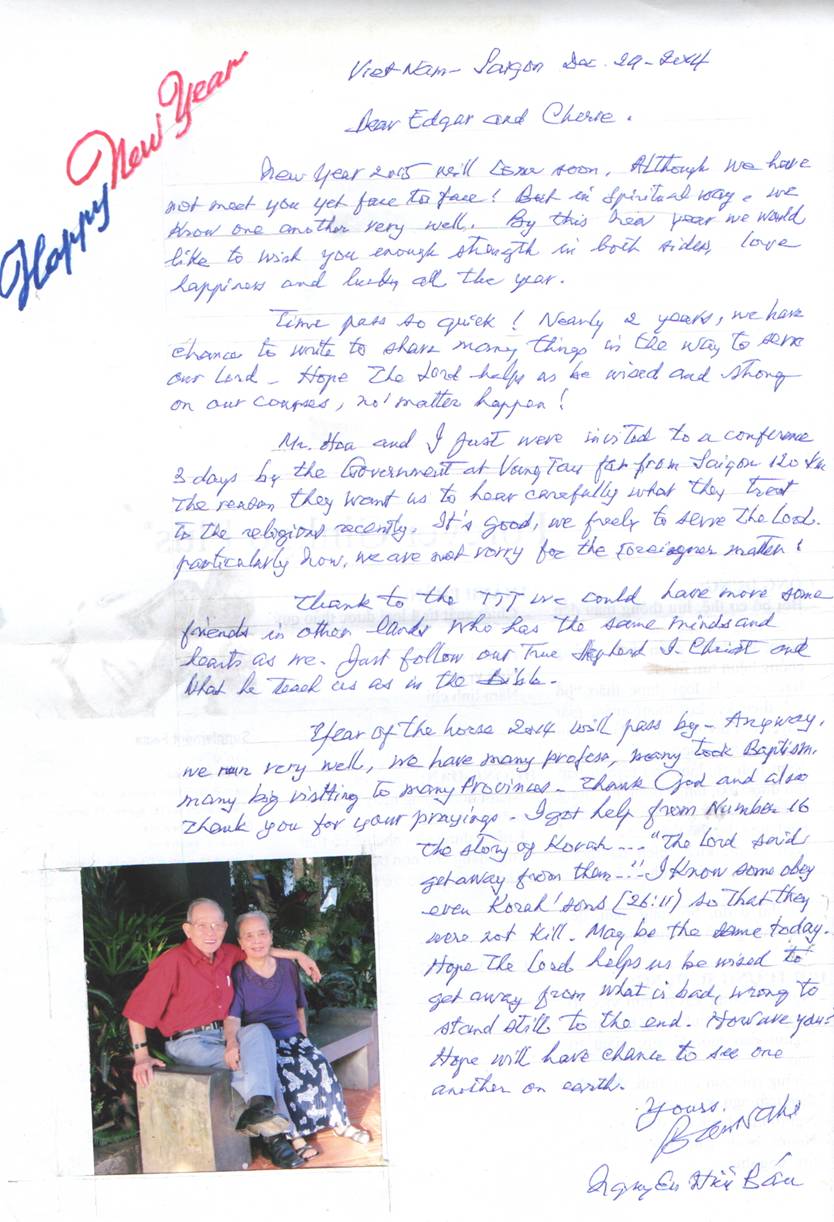 Happy New Year
Viet-Nam- Saigon Dec. 29-2014
Dear Edgar and Cherie.
New Year 2015 will come soon. Although we have
not meet you yet face to face! But in spiritual way, we
know one another very well. By this new year we would
like to wish you enough strength in both sides, love
happiness and lucky all the year.
Time pass so quick! Nearly 2 years, we have
chance to write to share many things in the way to serve
our Lord - Hope the Lord helps us be wised and strong
on our courses, no matter happen!
Mr. Hoa and I just were invited to a conference
3 days by the Government at Vung Tau far from Saigon 120 Km
The reason they want us to hear carefully what they treat
to the religious recently. It's good, we freely to serve the Lord.
particularly now, we are not worry for the Foreigner matter!
Thank to the we could have more some
friends in other lands who has the same minds and
hearts as we. Just follow our True Shepherd J. Christ and
what he teach us as in the Bible.
Year of the horse 2014 will pass by - Anyway,
we very well, we have many profess, many took Baptism.
many big visitting to many Provinces - Thank God and also
thank you for your prayings. I got help from Number 16
the story of Korah ... "The Lord said
get away from them ..." I know some obey
even Korah' sons (26:11) so that they
were not kill. May be the same today.
Hope the Lord helps us be wised to
get away from what is bad, wrong to
stand still to the end. How are you?
Hope will have chance to see one
another on earth.
Yours.
Nguyen Báu